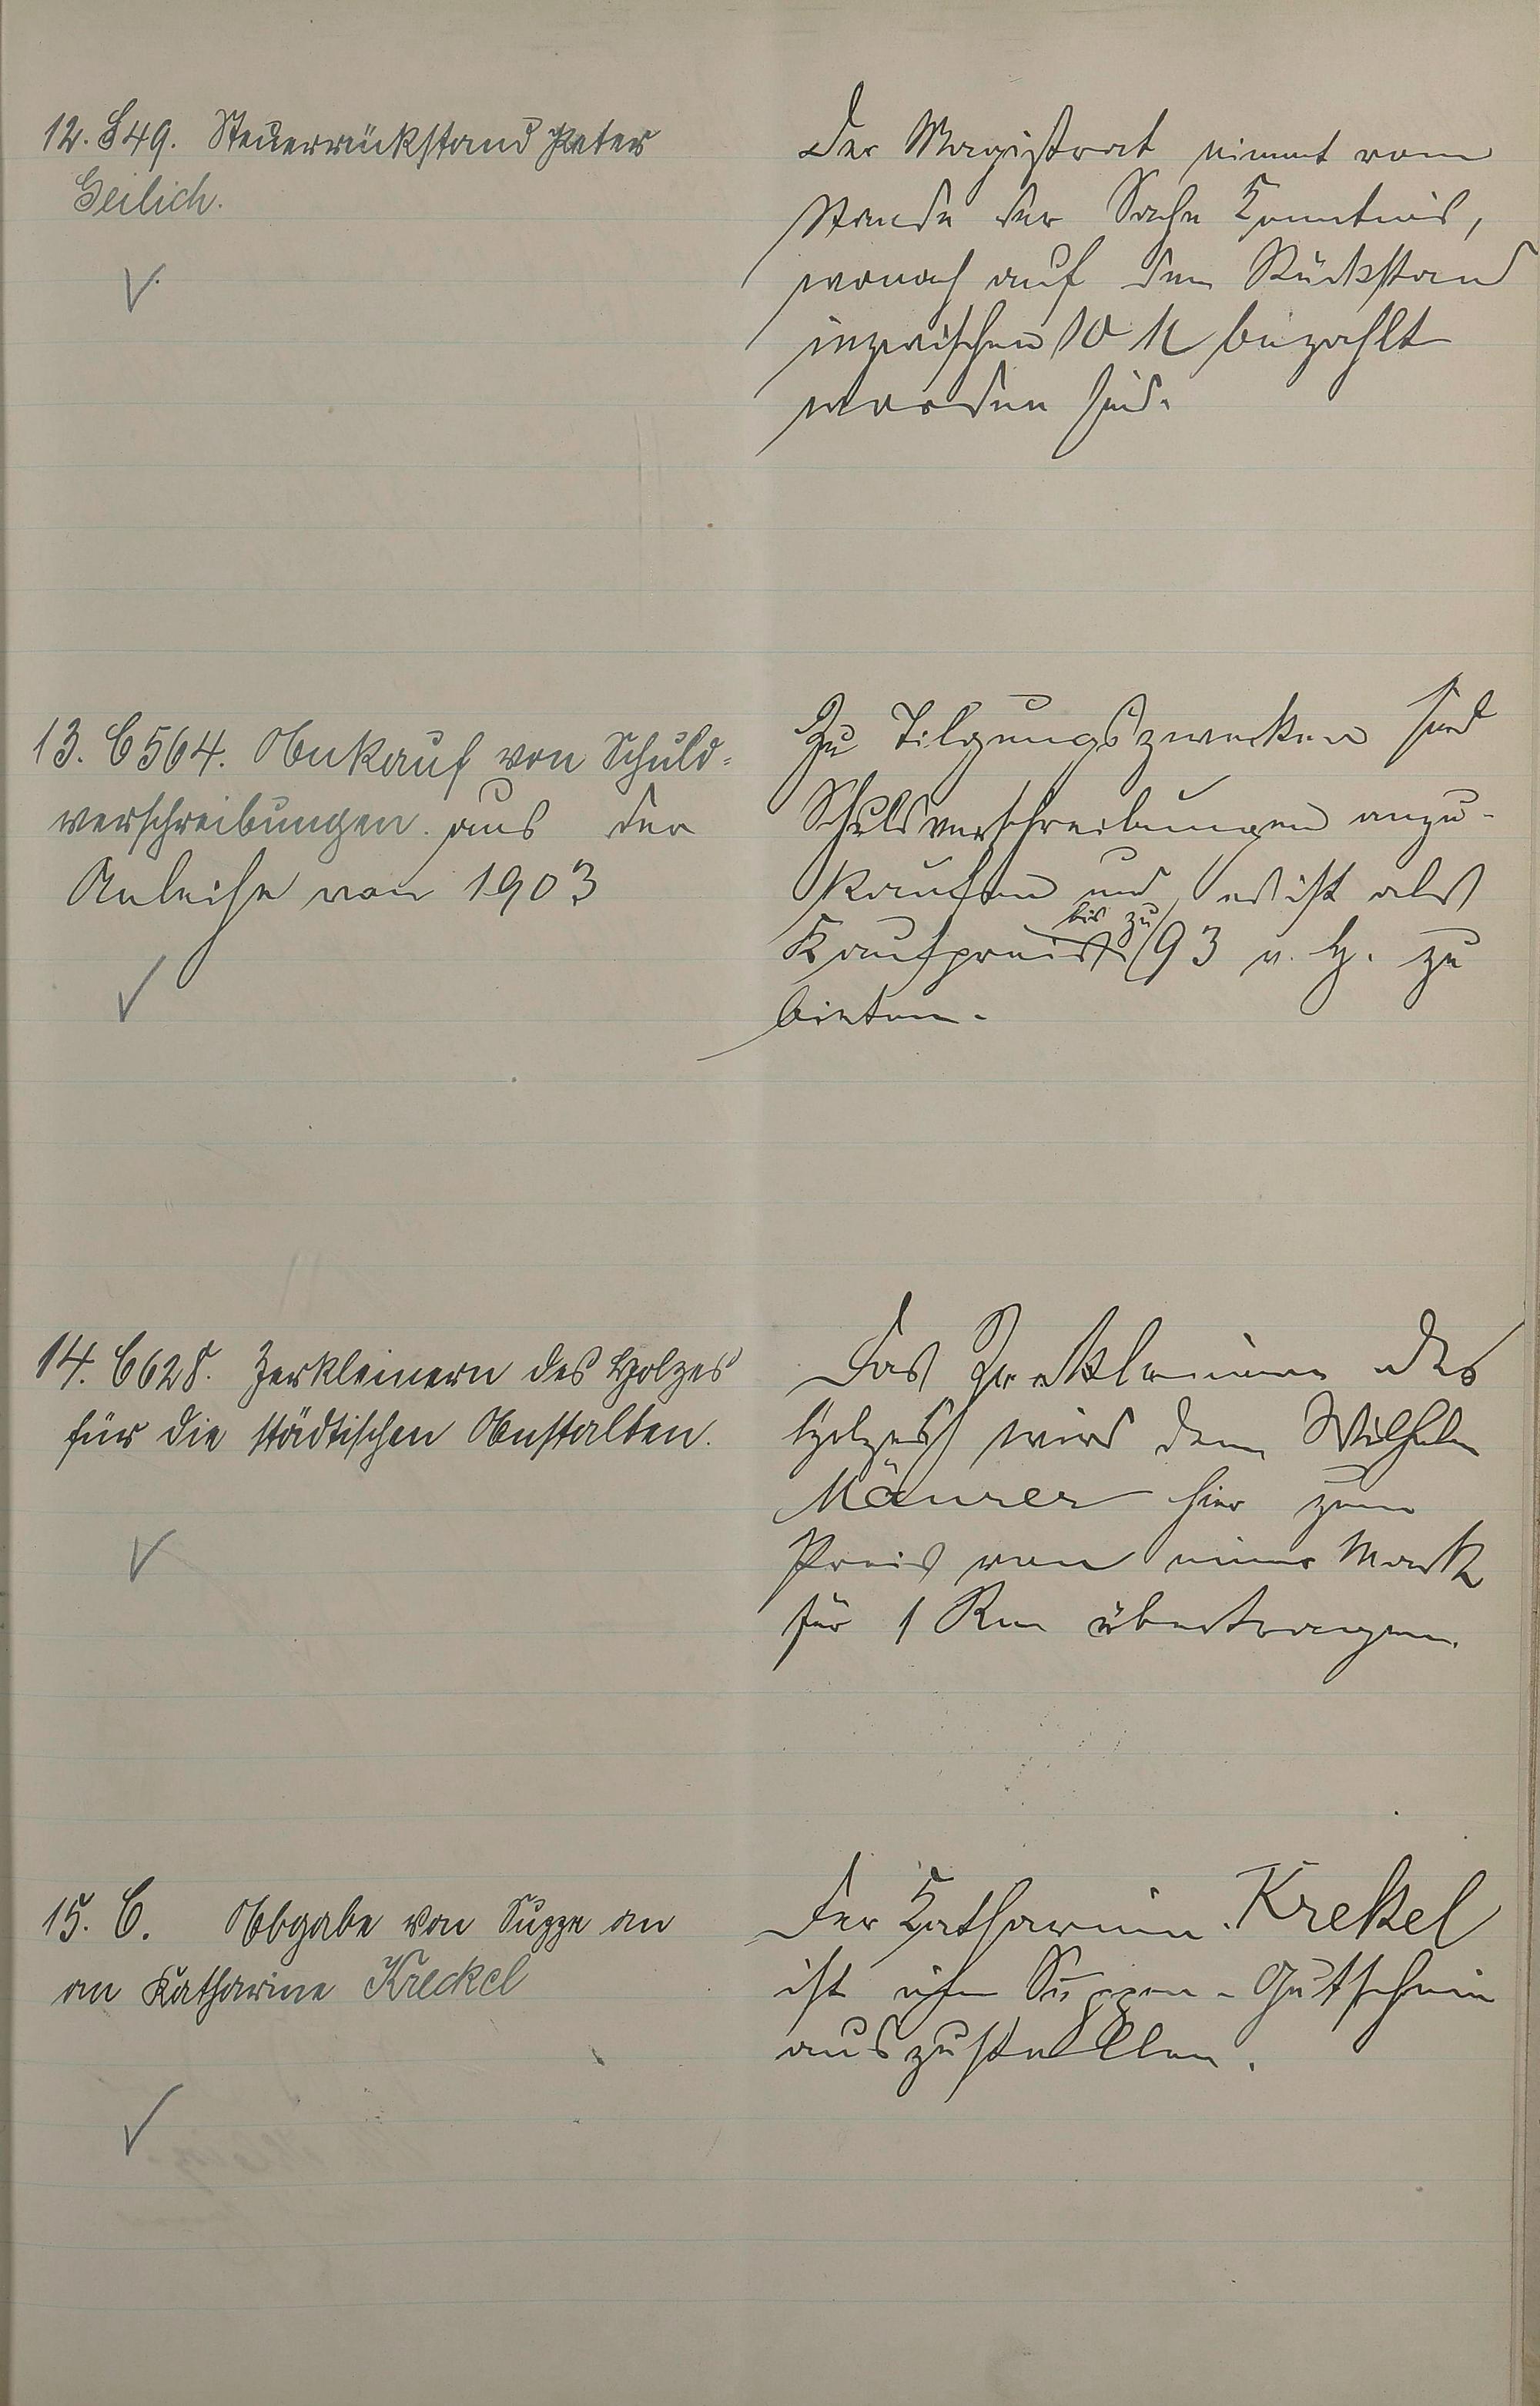 12. S 49. Steuerrückstand Peter
Geilich.
Der Magistrat nimmt vom
Stande der Sache Kenntnis,
wonach auf den Rückstand
inzwischen 10 M bezahlt
worden sind.
13. C 564. Ankauf von Schuld=
verschreibungen aus der
Anleihe von 1903
Zu Tilgungszwecken sind
Schuldverschreibungen anzu-
kaufen und es ist als
Kaufpreis bis zu 93 v. H. zu
bieten.
14. C 628. Zerkleinern des Holzes
für die städtischen Anstalten.
Das Zerkleinern des
Holzes wird dem Wilhelm
Mäurer hier zum
Preis von einer Mark
für 1 Rm übertragen.
15. C. Abgabe von Suppe an
an Katharine Kreckel
Der Katharina Krekel
ist ein Suppen-Gutschein
auszustellen.